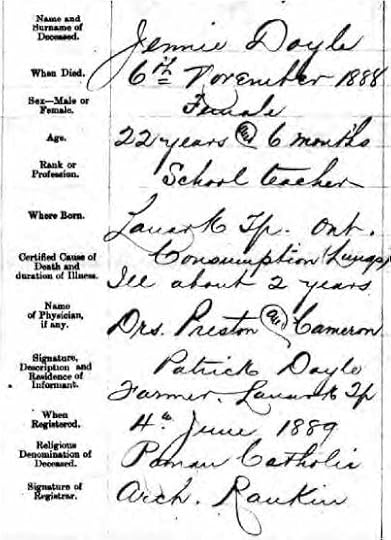 Name and
Surname of
Deceased.
Jennie Doyle
When Died.
6th November 1888
Sex—Male or
Female.
Female
Age.
22 years and 6 months
Rank or
Profession.
School teacher
Where Born.
Lanark Tp. Ont.
Certified Cause of
Death and
duration of Illness.
Consumption (Lungs)
Ill about 2 years
Name
of Physician,
if any.
Drs. Preston and Cameron
Signature,
Description and
Residence of
Informant.
Patrick Doyle
Farmer. Lanark Tp
When
Registered.
4th June 1889
Religious
Denomination of
Deceased.
Roman Catholic
Signature of
Registrar.
Arch. Rankin